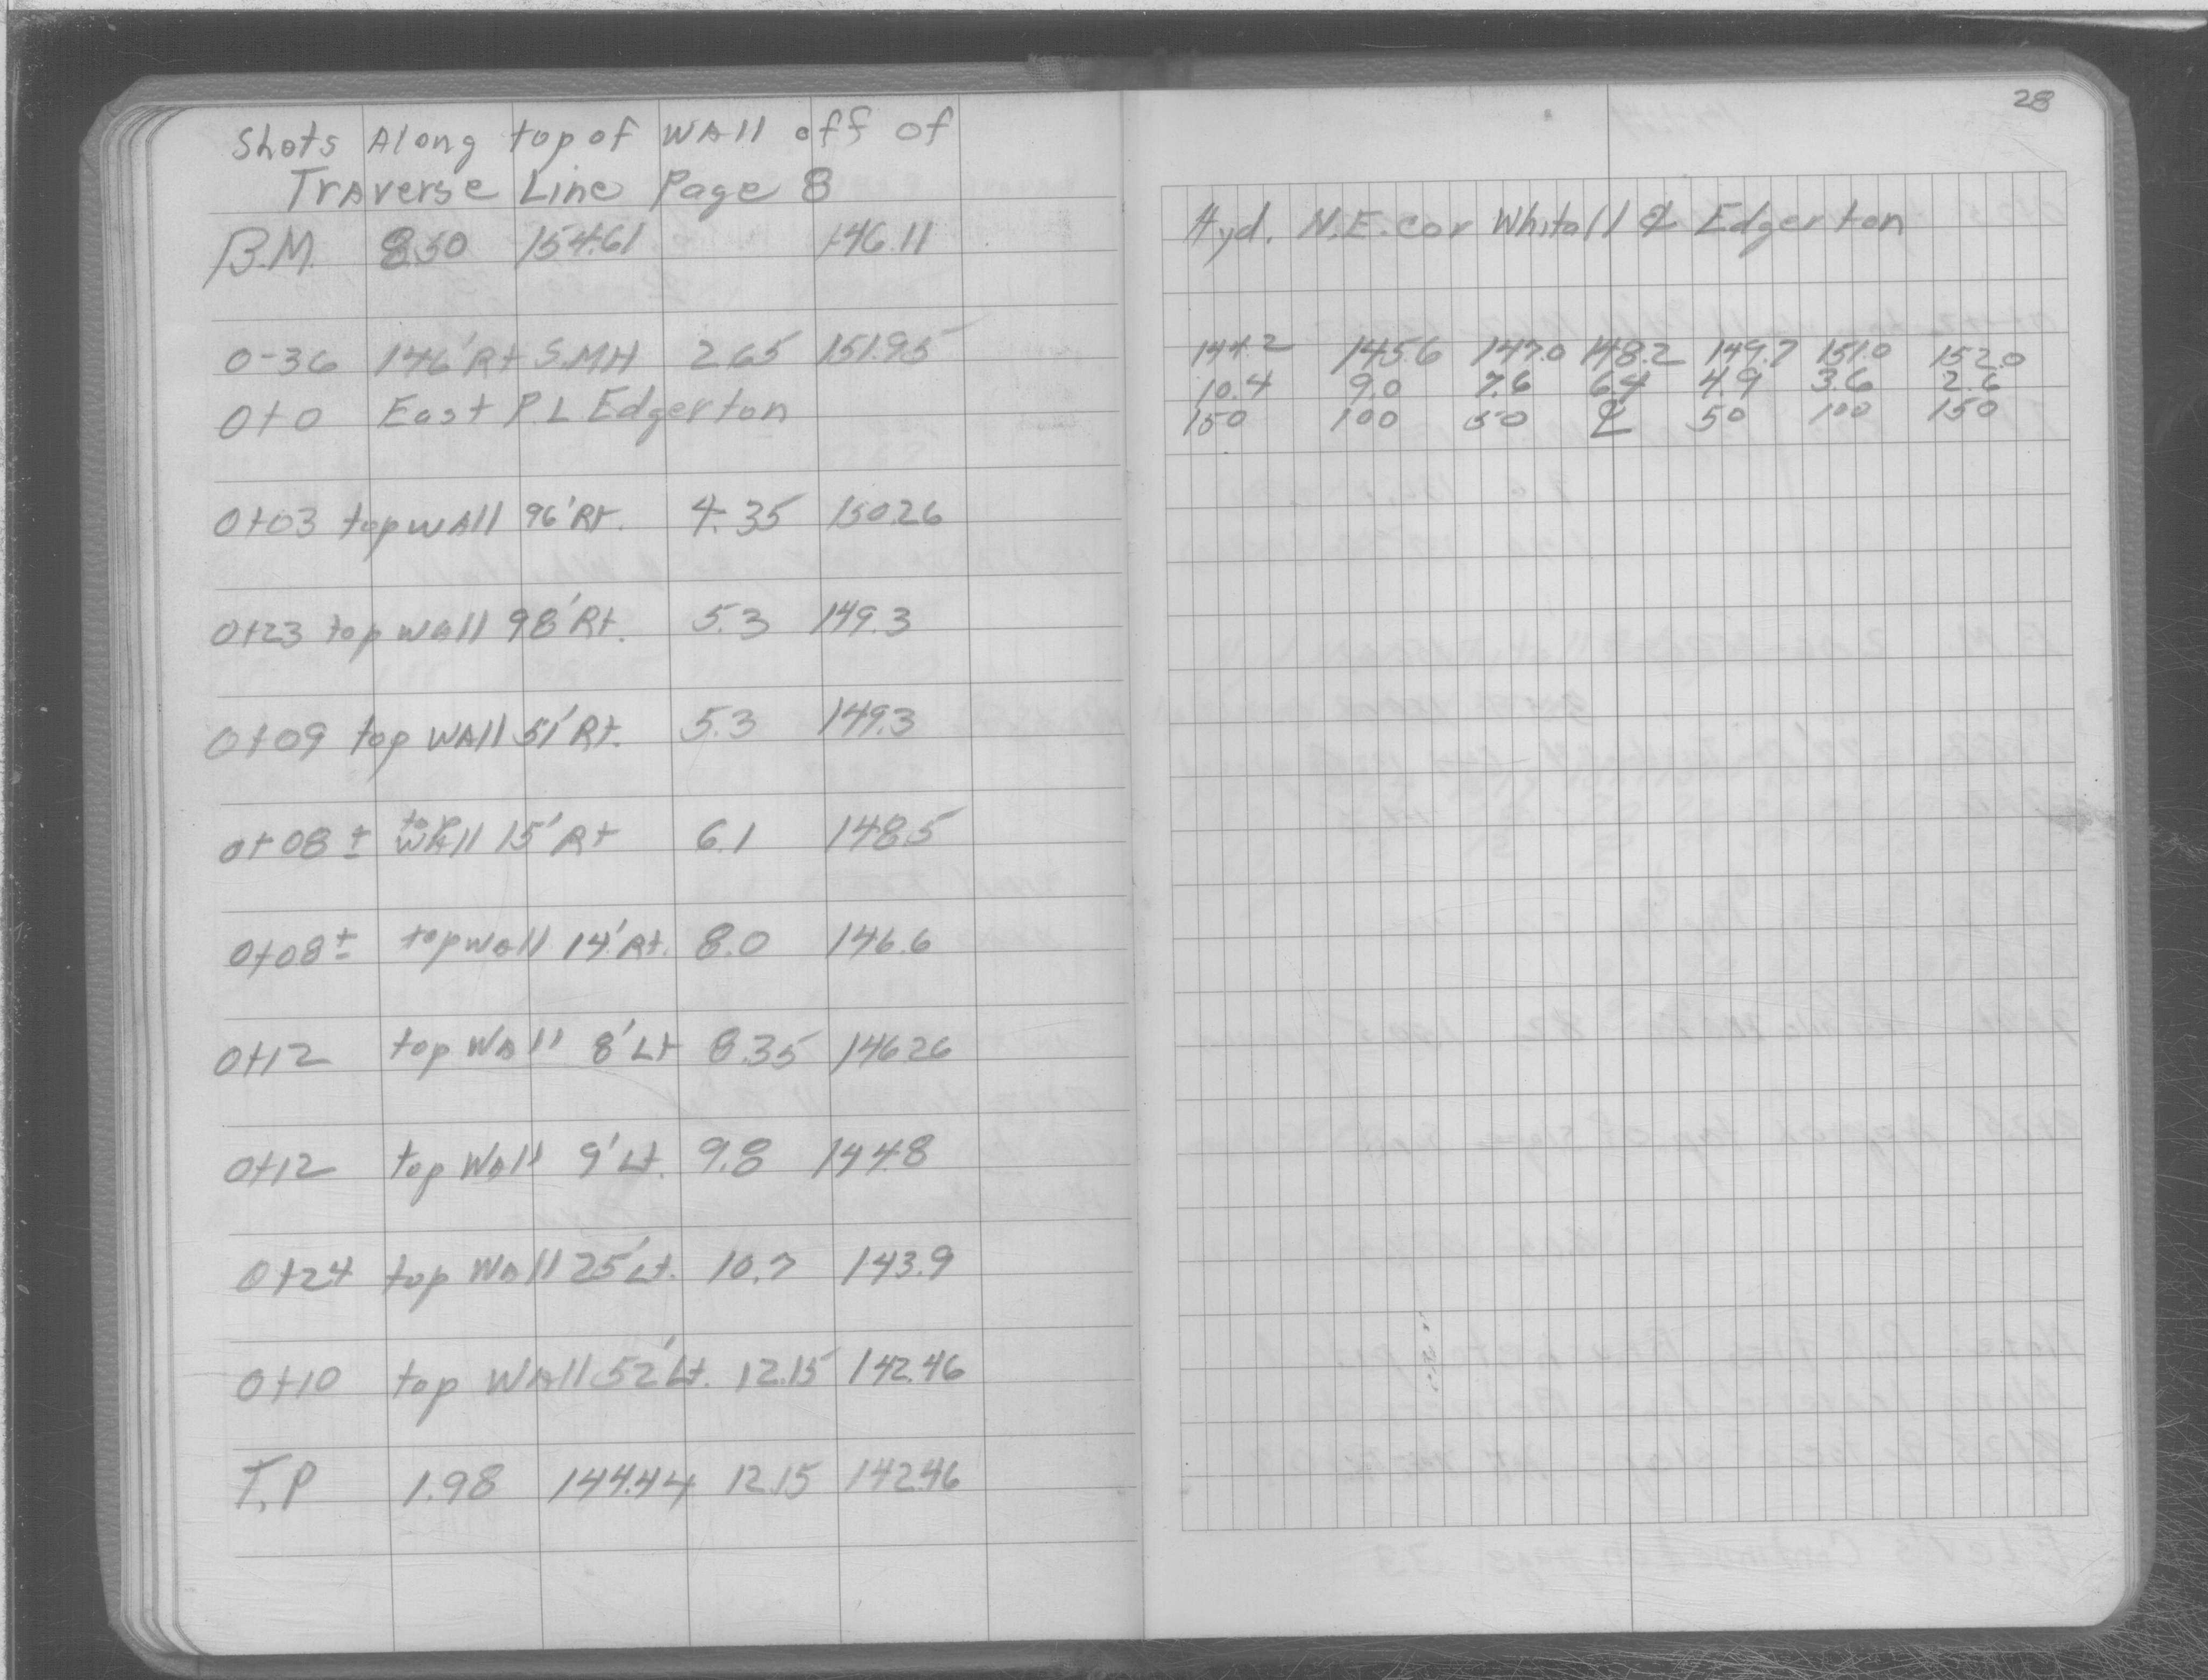 Shots Along top of Wall off of
Traverse Line Page 8
B.M. 8.50 154.61 146.11
0-36 146' Rt S.MH 2.65 151.95
0+0 East P.L Edgerton
0+03 top wall 96' Rt. 4.35 150.26
0+23 top wall 98' Rt. 5.3 149.3
0+09 top wall 51' Rt. 5.3 149.3
0+08± top wall 15' Rt 6.1 148.5
0+08± top wall 14' Rt. 8.0 146.6
0+12 top Wall 8' Lt 8.35 146.26
0+12 top Wall 9' Lt. 9.8 144.8
0+24 top Wall 25' Lt. 10.7 143.9
0+10 top Wall 52' Lt. 12.15 142.46
T.P 1.98 144.44 12.15 142.46
28
Hyd. N.E. cor Whitall & Edgerton
144.2 145.6 147.0 148.2 149.7 151.0 152.0
10.4 9.0 7.6 6.4 4.9 3.6 2.6
150 100 50 ℄ 50 100 150